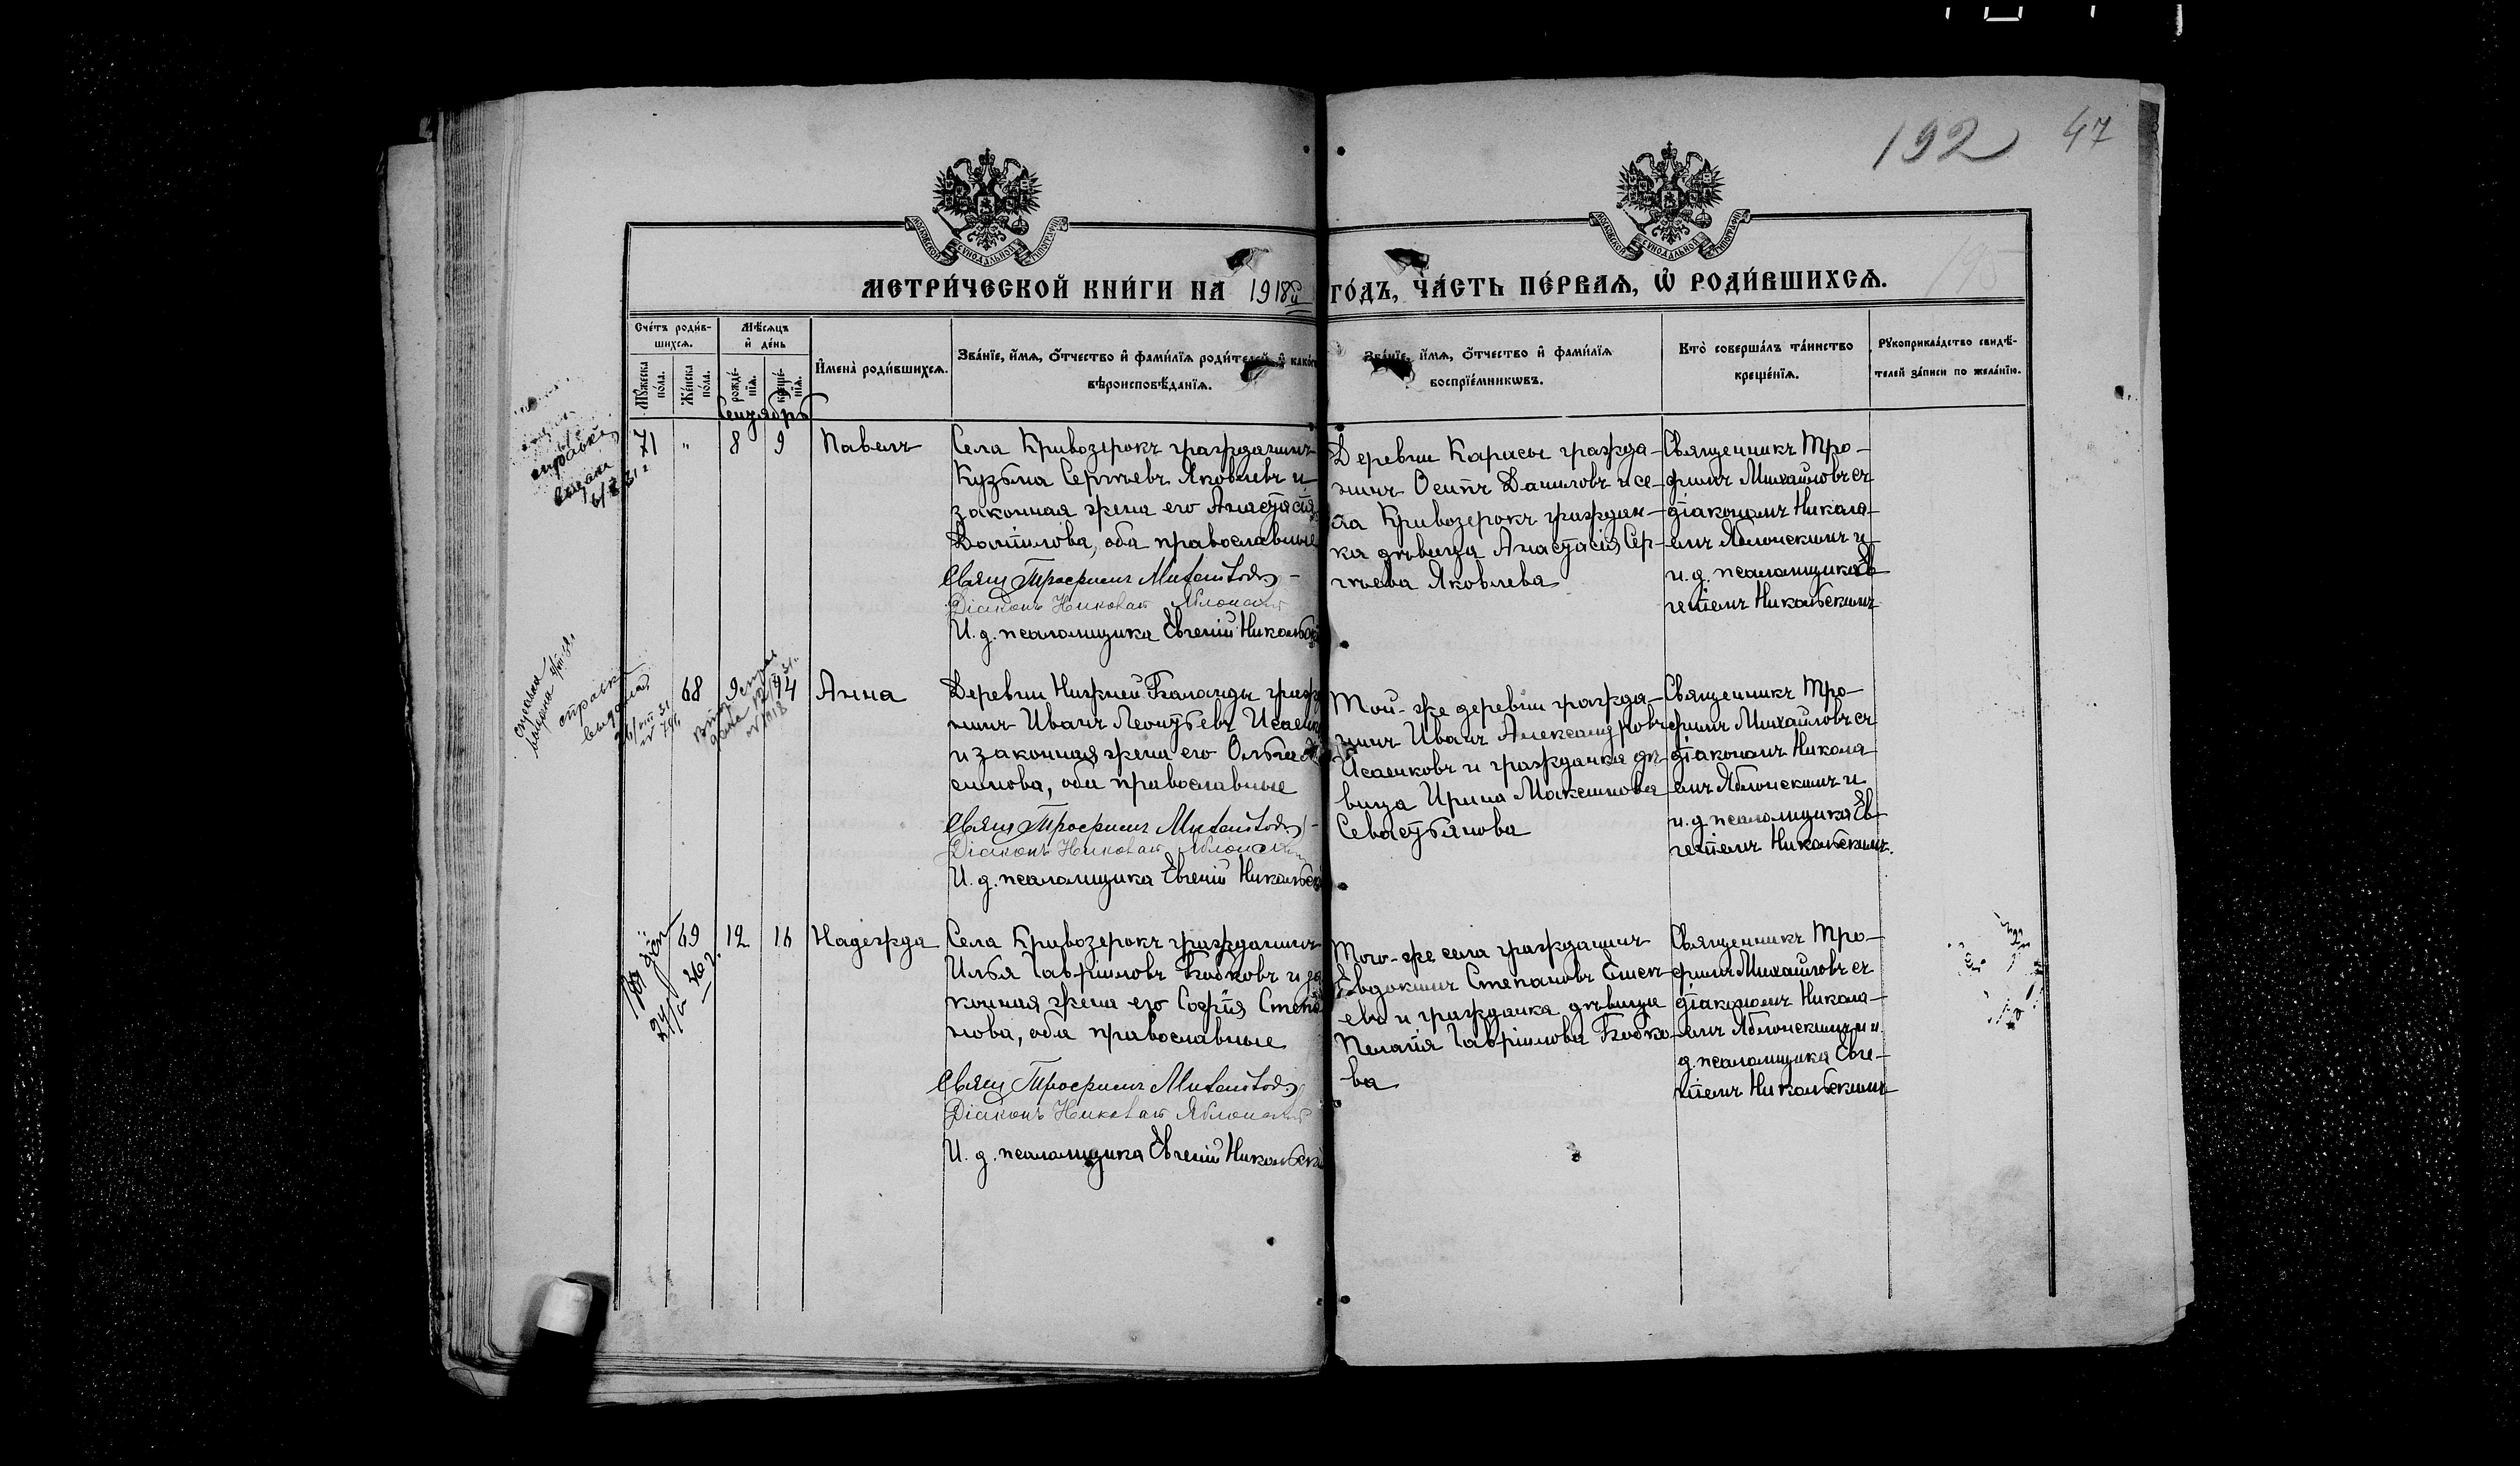 192 47
195
МОСКОВСКОЙ СѴНОДАЛЬНОЙ ТИПОГРАФІИ
МОСКОВСКОЙ СѴНОДАЛЬНОЙ ТИПОГРАФІИ
МЕТРИ́ЧЕСКОЙ КНИ́ГИ НА 1918й ГО́ДЪ, ЧА́СТЬ ПЕ́РВАѦ, Ѡ҆ РОДИ́ВШИХСѦ.
Сче́тъ роди́в-
шихсѧ.
Мꙋ́жеска
по́ла.
Же́нска
по́ла.
Мѣ́сѧцъ
и҆ де́нь
рожде́-
нїѧ.
креще́-
нїѧ.
И҆мена̀ роди́вшихсѧ.
Зва́нїе, и҆́мѧ, ѻ҆́тчество и҆ фами́лїѧ роди́телей, и҆ како́гѡ
вѣроисповѣ́данїѧ.
Зва́нїе, и҆́мѧ, ѻ҆́тчество и҆ фами́лїѧ
воспрїе́мникѡвъ.
Кто̀ соверша́лъ та́инство
креще́нїѧ.
Рꙋкоприкла́дство свидѣ́-
телей за́писи по жела́нїю.
Сентябрь
71 " 8 9 Павелъ
Села Кривозерокъ гражданинъ
Кузьма Сергѣевъ Яковлевъ и
законная жена его Анастасія
Данилова, оба православные
Свящ Трофимъ Михайловъ
Діаконъ Николай Яблонскій
И. д. псаломщика Евгеній Никольскій
Деревни Карасы гражда-
нинъ Осипъ Даниловъ и се-
ла Кривозерокъ граждан-
ка дѣвица Анастасія Сер-
гѣева Яковлева
Священникъ Тро-
фимъ Михайловъ съ
діакономъ Никола-
емъ Яблонскимъ и
и. д. псаломщика Ев-
геніемъ Никольскимъ
справка
выдана
справка
выдана
68 9 14 Анна
Деревни Нижней Баланды граж
нинъ Иванъ Леонтьевъ Исаенко
и законная жена его Ольга
симова, оба православные
Свящ Трофимъ Михайловъ
Діаконъ Николай Яблонскій
И. д. псаломщика Евгеній Никольскій
Той-же деревни гражда-
нинъ Иванъ Александровъ
Исаенковъ и гражданка дѣ-
вица Ирина Максимова
Севастьянова
Священникъ Тро-
фимъ Михайловъ съ
діакономъ Никола-
емъ Яблонскимъ и
и. д. псаломщика Ев-
геніемъ Никольскимъ.
69 12 16 Надежда
Села Кривозерокъ гражданинъ
Илья Гавріиловъ Бобковъ и за
конная жена его Софія Степа
нова, оба православные
Свящ Трофимъ Михайловъ
Діаконъ Николай Яблонскій
И. д. псаломщика Евгеній Никольскій
Того-же села гражданинъ
Евдокимъ Степановъ
евъ и гражданка дѣвица
Пелагія Гавріилова Бобко-
ва
Священникъ Тро-
фимъ Михайловъ съ
діакономъ Никола-
емъ Яблонскимъ и и.
д. псаломщика Евге-
ніемъ Никольскимъ